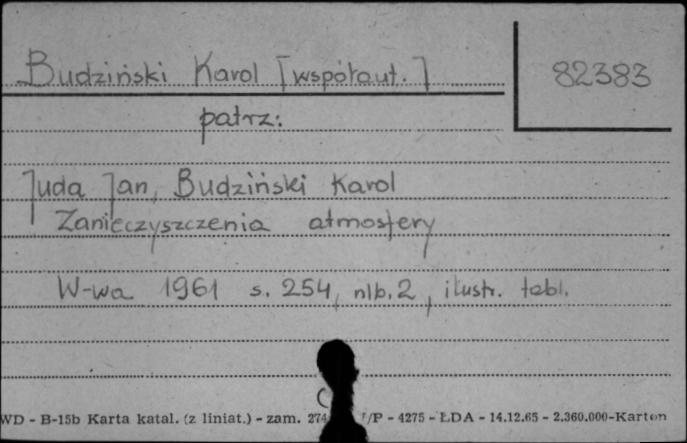 Budziński Karol [współaut.]
82383
patrz:
Juda Jan, Budziński Karol
Zanieczyszczenia atmosfery
W-wa 1961 s. 254, nlb. 2, ilustr. tabl.
WD - B-15b Karta katal. (z liniat.) - zam. 274 /P - 4275 - ŁDA - 14.12.65 - 2.360.000-Karton